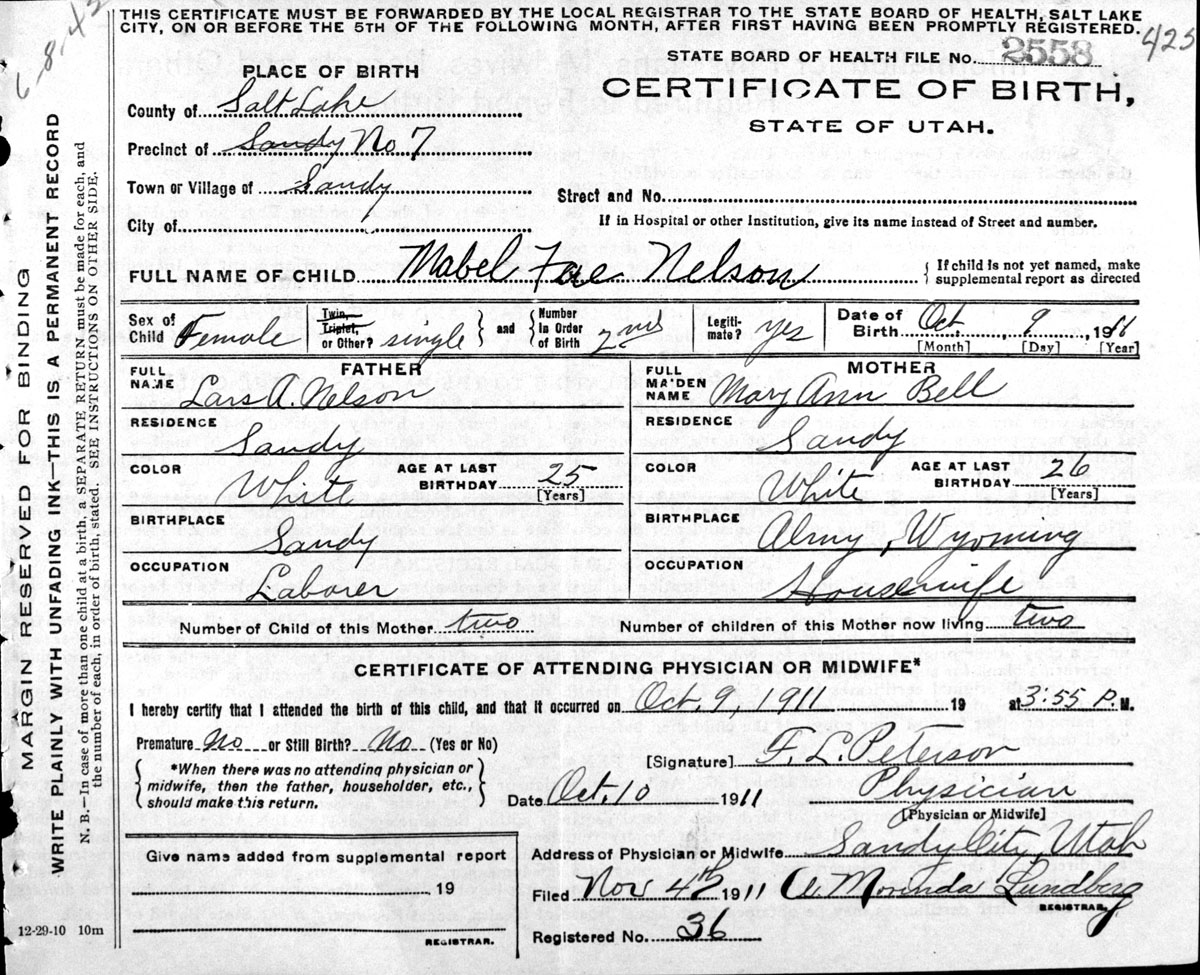 THIS CERTIFICATE MUST BE FORWARDED BY THE LOCAL REGISTRAR TO THE STATE BOARD OF HEALTH, SALT LAKE
CITY, ON OR BEFORE THE 5TH OF THE FOLLOWING MONTH, AFTER FIRST HAVING BEEN PROMPTLY REGISTERED.
6-8-42
425
STATE BOARD OF HEALTH FILE No. 2558
CERTIFICATE OF BIRTH,
STATE OF UTAH.
PLACE OF BIRTH
County of Salt Lake
Precinct of Sandy No 7
Town or Village of Sandy
City of
Street and No.
If in Hospital or other Institution, give its name instead of Street and number.
FULL NAME OF CHILD Mabel Fae Nelson
{ If child is not yet named, make
supplemental report as directed
Sex of Child Female
Twin, Triplet, or Other? single } and { Number In Order of Birth 2nd
Legiti-mate? yes
Date of Birth Oct 9, 1911
[Month] [Day] [Year]
FATHER
FULL NAME Lars A. Nelson
RESIDENCE Sandy
COLOR White AGE AT LAST BIRTHDAY 25 [Years]
BIRTHPLACE Sandy
OCCUPATION Laborer
MOTHER
FULL MAIDEN NAME Mary Ann Bell
RESIDENCE Sandy
COLOR White AGE AT LAST BIRTHDAY 26 [Years]
BIRTHPLACE Almy, Wyoming
OCCUPATION Housewife
Number of Child of this Mother two
Number of children of this Mother now living two
CERTIFICATE OF ATTENDING PHYSICIAN OR MIDWIFE*
I hereby certify that I attended the birth of this child, and that it occurred on Oct. 9, 1911 19 at 3:55 P. M.
Premature No or Still Birth? No (Yes or No)
*When there was no attending physician or
midwife, then the father, householder, etc.,
should make this return.
[Signature] F. L. Peterson
Date Oct. 10 1911 Physician
[Physician or Midwife]
Give name added from supplemental report
19
REGISTRAR.
Address of Physician or Midwife Sandy City, Utah
Filed Nov 4th 1911 A. Morinda Lundberg
REGISTRAR.
Registered No. 36
12-29-10 10m
MARGIN RESERVED FOR BINDING
WRITE PLAINLY WITH UNFADING INK—THIS IS A PERMANENT RECORD
N. B.—In case of more than one child at a birth, a SEPARATE RETURN must be made for each, and
the number of each, in order of birth, stated. SEE INSTRUCTIONS ON OTHER SIDE.